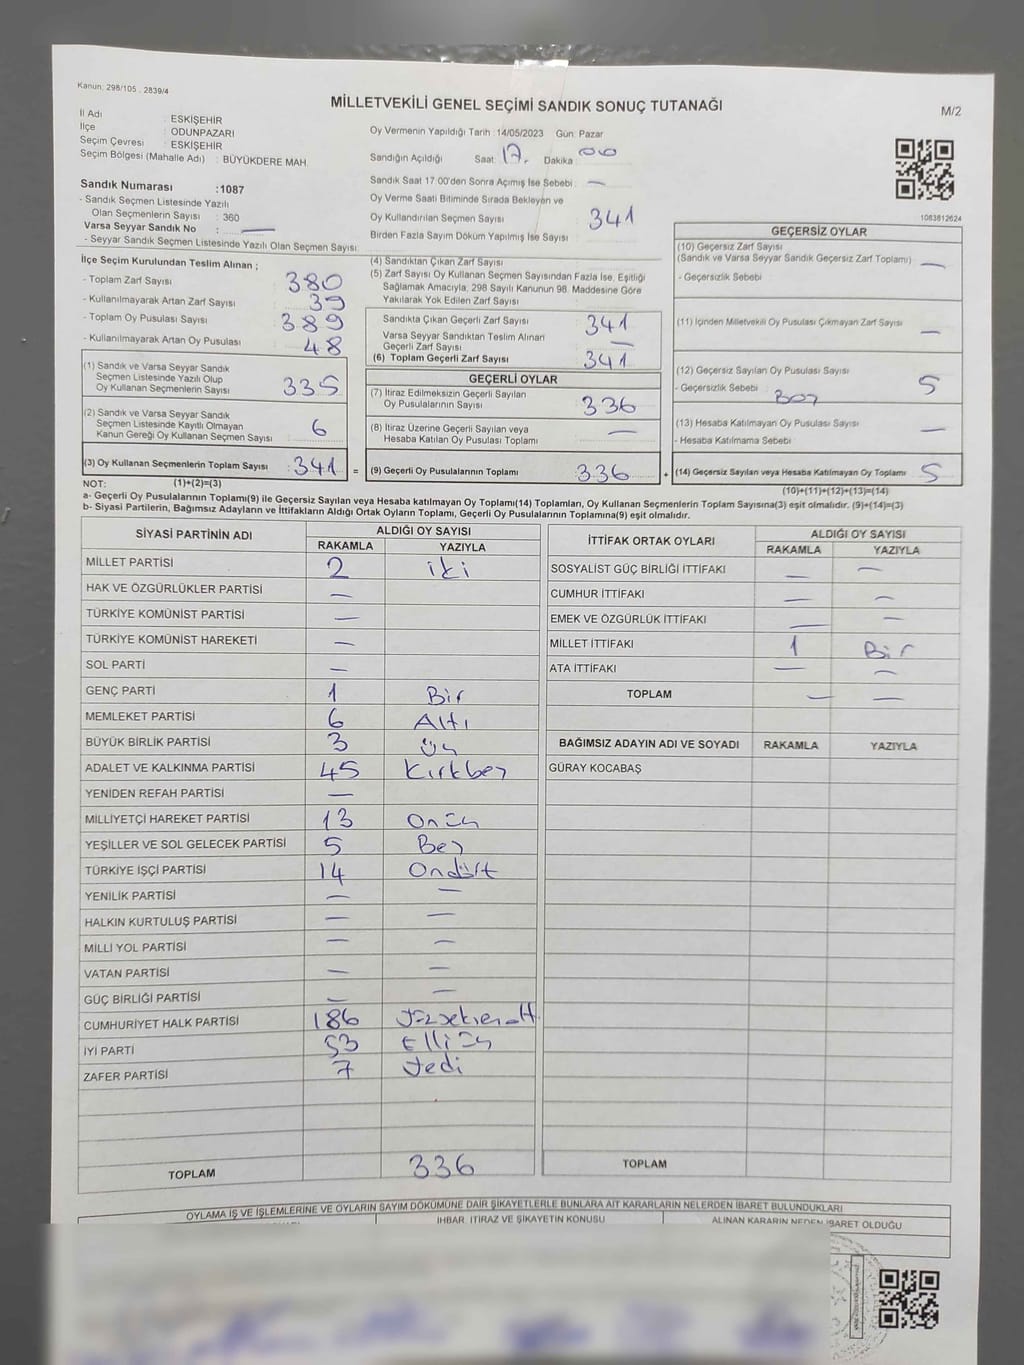 Kanun: 298/105 , 2839/4
MİLLETVEKİLİ GENEL SEÇİMİ SANDIK SONUÇ TUTANAĞI
M/2
İl Adı : ESKİŞEHİR
İlçe : ODUNPAZARI
Seçim Çevresi : ESKİŞEHİR
Seçim Bölgesi (Mahalle Adı) : BÜYÜKDERE MAH.
Sandık Numarası :1087
- Sandık Seçmen Listesinde Yazılı
Olan Seçmenlerin Sayısı : 360
Varsa Seyyar Sandık No : —
- Seyyar Sandık Seçmen Listesinde Yazılı Olan Seçmen Sayısı:
Oy Vermenin Yapıldığı Tarih :14/05/2023 Gün: Pazar
Sandığın Açıldığı Saat: 17. Dakika: 00
Sandık Saat 17:00'den Sonra Açımış İse Sebebi : —
Oy Verme Saati Bitiminde Sırada Bekleyen ve
Oy Kullandırılan Seçmen Sayısı : 341
Birden Fazla Sayım Döküm Yapılmış İse Sayısı :
1083812624
İlçe Seçim Kurulundan Teslim Alınan ;
- Toplam Zarf Sayısı : 380
- Kullanılmayarak Artan Zarf Sayısı : 39
- Toplam Oy Pusulası Sayısı : 389
- Kullanılmayarak Artan Oy Pusulası : 48
(1) Sandık ve Varsa Seyyar Sandık
Seçmen Listesinde Yazılı Olup
Oy Kullanan Seçmenlerin Sayısı : 335
(2) Sandık ve Varsa Seyyar Sandık
Seçmen Listesinde Kayıtlı Olmayan
Kanun Gereği Oy Kullanan Seçmen Sayısı : 6
(3) Oy Kullanan Seçmenlerin Toplam Sayısı : 341 =
(4) Sandıktan Çıkan Zarf Sayısı :
(5) Zarf Sayısı Oy Kullanan Seçmen Sayısından Fazla İse, Eşitliği
Sağlamak Amacıyla, 298 Sayılı Kanunun 98. Maddesine Göre
Yakılarak Yok Edilen Zarf Sayısı :
Sandıkta Çıkan Geçerli Zarf Sayısı : 341
Varsa Seyyar Sandıktan Teslim Alınan
Geçerli Zarf Sayısı : —
(6) Toplam Geçerli Zarf Sayısı : 341
GEÇERLİ OYLAR
(7) İtiraz Edilmeksizin Geçerli Sayılan
Oy Pusulalarının Sayısı : 336
(8) İtiraz Üzerine Geçerli Sayılan veya
Hesaba Katılan Oy Pusulası Toplamı : —
(9) Geçerli Oy Pusulalarının Toplamı : 336 +
GEÇERSİZ OYLAR
(10) Geçersiz Zarf Sayısı
(Sandık ve Varsa Seyyar Sandık Geçersiz Zarf Toplamı) : —
- Geçersizlik Sebebi :
(11) İçinden Milletvekili Oy Pusulası Çıkmayan Zarf Sayısı : —
(12) Geçersiz Sayılan Oy Pusulası Sayısı : 5
- Geçersizlik Sebebi : Boş
(13) Hesaba Katılmayan Oy Pusulası Sayısı : —
- Hesaba Katılmama Sebebi :
(14) Geçersiz Sayılan veya Hesaba Katılmayan Oy Toplamı : 5
NOT: (1)+(2)=(3)
(10)+(11)+(12)+(13)=(14)
a- Geçerli Oy Pusulalarının Toplamı(9) ile Geçersiz Sayılan veya Hesaba katılmayan Oy Toplamı(14) Toplamları, Oy Kullanan Seçmenlerin Toplam Sayısına(3) eşit olmalıdır. (9)+(14)=(3)
b- Siyasi Partilerin, Bağımsız Adayların ve İttifakların Aldığı Ortak Oyların Toplamı, Geçerli Oy Pusulalarının Toplamına(9) eşit olmalıdır.
SİYASİ PARTİNİN ADI ALDIĞI OY SAYISI
RAKAMLA YAZIYLA
MİLLET PARTİSİ 2 iki
HAK VE ÖZGÜRLÜKLER PARTİSİ —
TÜRKİYE KOMÜNİST PARTİSİ —
TÜRKİYE KOMÜNİST HAREKETİ —
SOL PARTİ —
GENÇ PARTİ 1 Bir
MEMLEKET PARTİSİ 6 Altı
BÜYÜK BİRLİK PARTİSİ 3 Üç
ADALET VE KALKINMA PARTİSİ 45 Kırkbeş
YENİDEN REFAH PARTİSİ —
MİLLİYETÇİ HAREKET PARTİSİ 13 Onüç
YEŞİLLER VE SOL GELECEK PARTİSİ 5 Beş
TÜRKİYE İŞÇİ PARTİSİ 14 Ondört
YENİLİK PARTİSİ — —
HALKIN KURTULUŞ PARTİSİ — —
MİLLİ YOL PARTİSİ — —
VATAN PARTİSİ — —
GÜÇ BİRLİĞİ PARTİSİ — —
CUMHURİYET HALK PARTİSİ 186 Yüzseksenaltı
İYİ PARTİ 53 Elliüç
ZAFER PARTİSİ 7 Yedi
TOPLAM 336
İTTİFAK ORTAK OYLARI ALDIĞI OY SAYISI
RAKAMLA YAZIYLA
SOSYALİST GÜÇ BİRLİĞİ İTTİFAKI — —
CUMHUR İTTİFAKI — —
EMEK VE ÖZGÜRLÜK İTTİFAKI — —
MİLLET İTTİFAKI 1 Bir
ATA İTTİFAKI — —
TOPLAM — —
BAĞIMSIZ ADAYIN ADI VE SOYADI RAKAMLA YAZIYLA
GÜRAY KOCABAŞ
TOPLAM
OYLAMA İŞ VE İŞLEMLERİNE VE OYLARIN SAYIM DÖKÜMÜNE DAİR ŞİKAYETLERLE BUNLARA AİT KARARLARIN NELERDEN İBARET BULUNDUKLARI
İHBAR, İTİRAZ VE ŞİKAYETİN KONUSU
ALINAN KARARIN NEDEN İBARET OLDUĞU